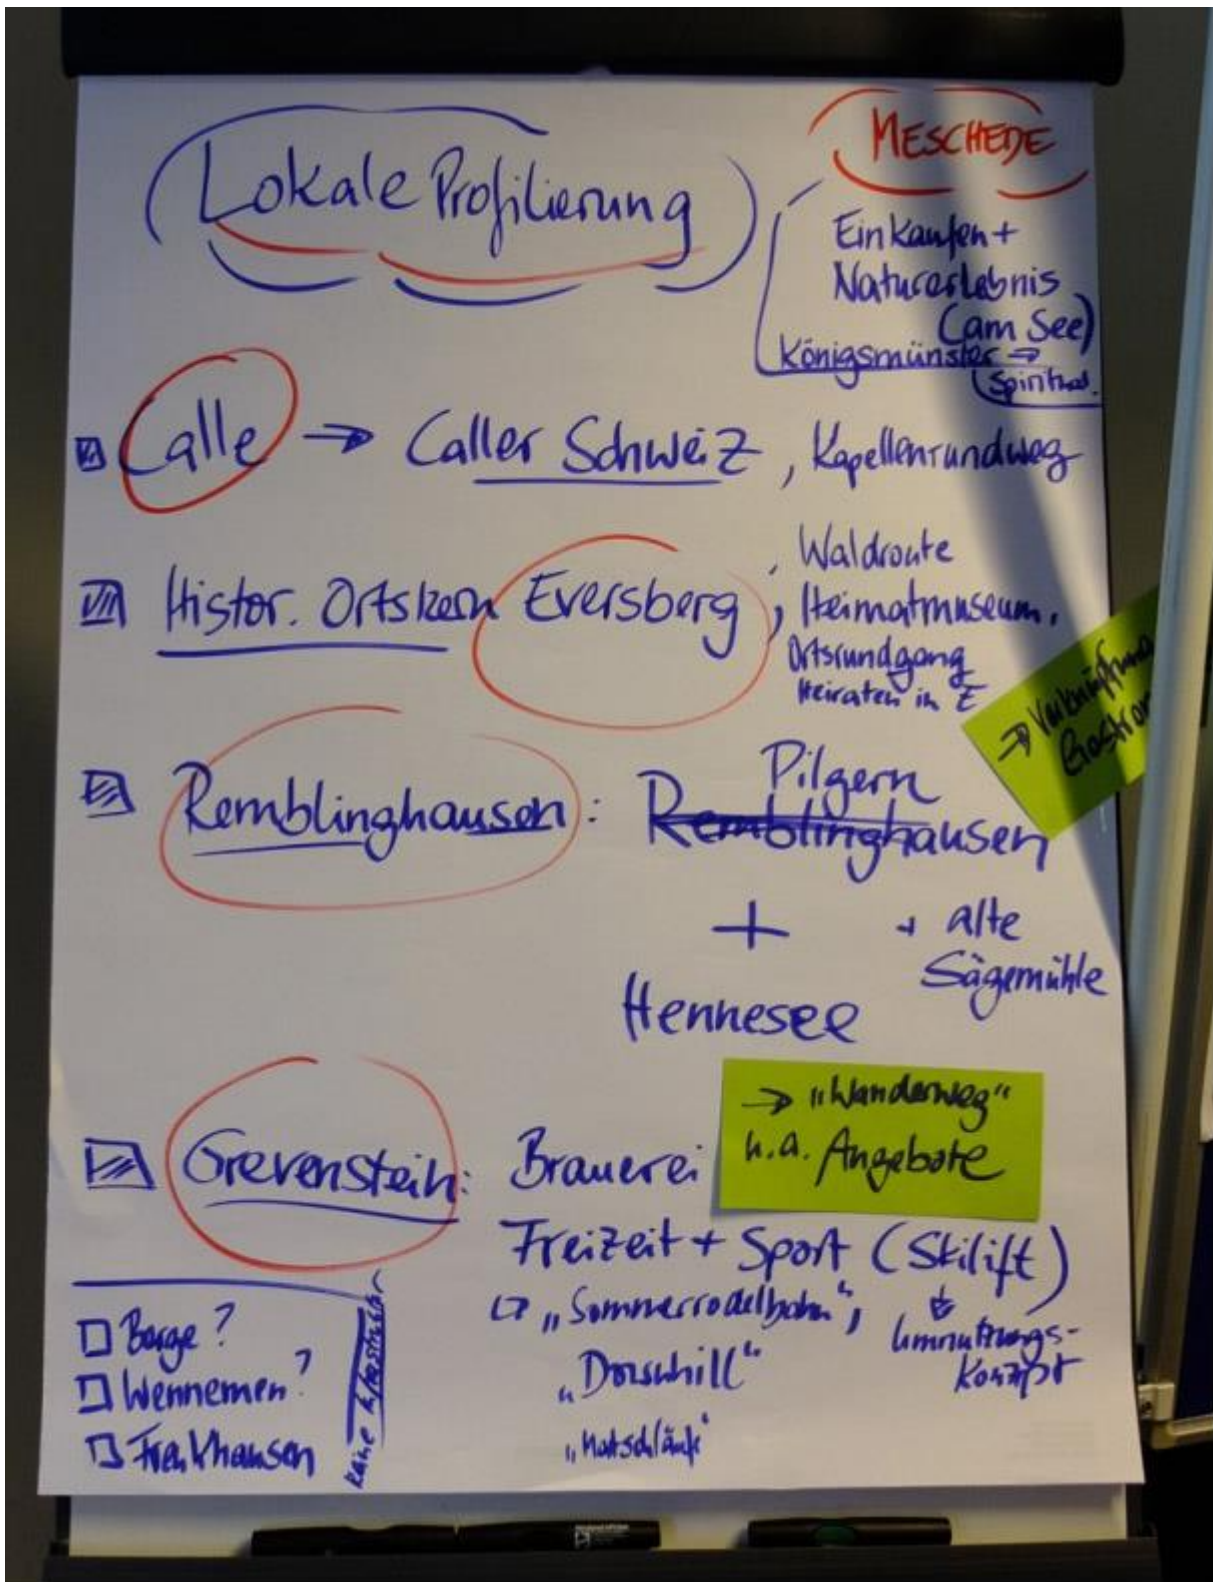 Lokale Profilierung
MESCHEDE
Einkaufen +
Naturerlebnis
(am See)
Königsmünster →
Spiritual.
Calle → Caller Schweiz, Kapellenrundweg
Histor. Ortskern Eversberg, Waldroute
, Heimatmuseum,
Ortsrundgang
Heiraten in E
→ Verknüpfung
Remblinghausen: Pilgern
Remblinghausen
+ + alte
Sägemühle
Hennesee
→ "Wanderweg"
u.a. Angebote
Grevenstein: Brauerei
Freizeit + Sport (Skilift)
↳ "Sommerrodelbahn", ↓ Umnutzungs-
konzept
"Downhill"
"Matschläufe"
Berge?
Wennemen?
Freckhausen
keine